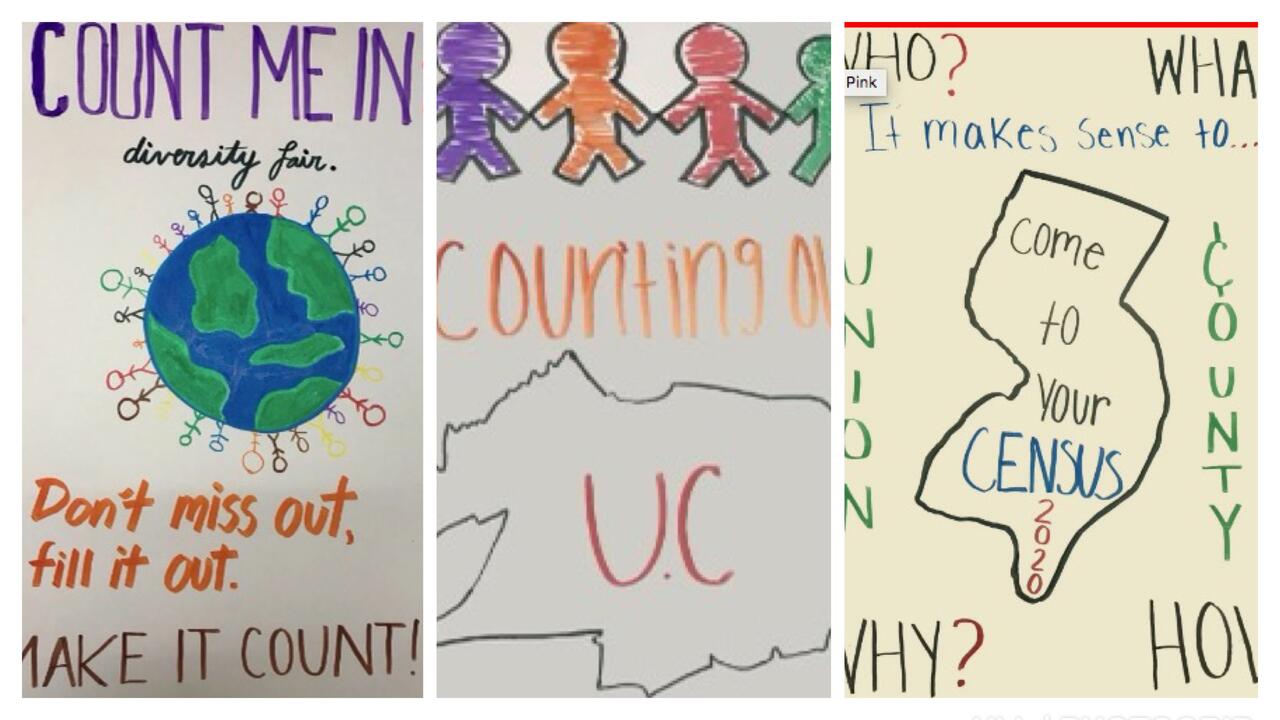 COUNT ME IN
diversity fair.
Don't miss out,
fill it out.
MAKE IT COUNT!
Counting
U.C
WHO?
WHA
Pink
It makes sense to...
UNION
COUNTY
come
to
your
CENSUS
2020
WHY?
HOW